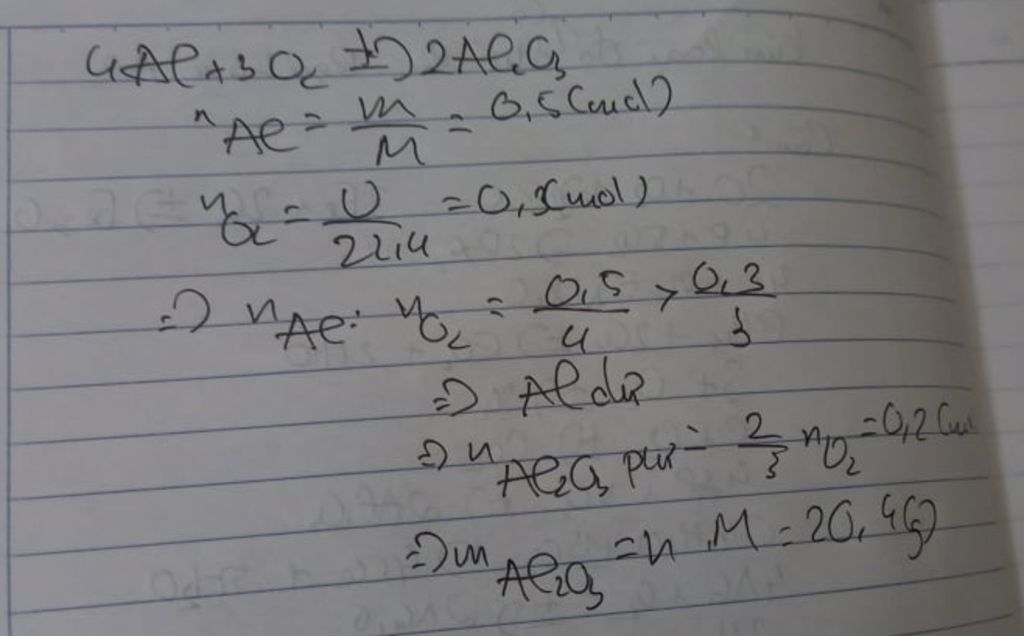 4Al + 3O₂ →(t°) 2Al₂O₃
nAl = m/M = 0,5 (mol)
nO₂ = V/22,4 = 0,3 (mol)
=> nAl : nO₂ = 0,5/4 > 0,3/3
=> Al dư
=> nAl₂O₃ = 2/3 nO₂ = 0,2 (mol
=> mAl₂O₃ = n.M = 20,4 (g)